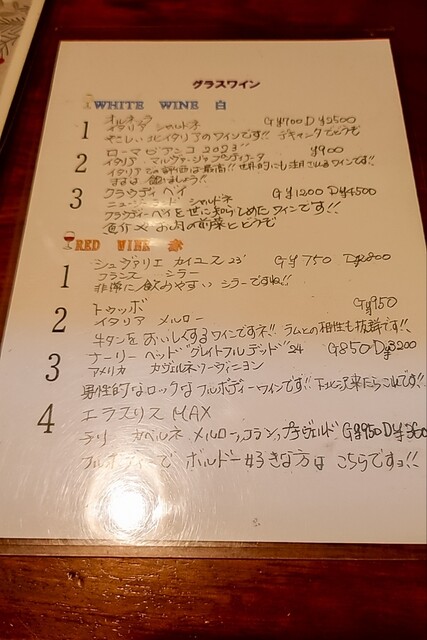 グラスワイン
WHITE WINE 白
1 オルネラ
イタリア シャルドネ G¥700 D¥2500
やさしい北イタリアのワインです!! デキャンタでどうぞ
2 ローマ ビアンコ 2023" ¥900
イタリア マルヴァージャプンティナータ
イタリアでの評価は最高!! 世界的にも注目されるワインです!!
まずは 飲みましょう!!
3 クラウディ ベイ G¥1200 D¥4500
ニュージーランド シャルドネ
クラウディーベイを世に知らしめたワインです!!
魚介 × お肉の前菜とどうぞ
RED WINE 赤
1 シュヴァリエ カイユス 23' G¥750
フランス シラー
非常に飲みやすい シラーですね!!
2 トゥッボ G¥950
イタリア メルロー
牛タンをおいしくするワインですネ!! ラムとの相性も抜群です!!
3 ナーリー ヘッド "グレイトフル デッド" 24 G850 D¥3200
アメリカ カヴェルネソーヴィニヨン
男性的なロックなフルボディーワインです!! 下北に来たらこれです!!
4 エラスリス MAX
チリ カベルネ メルロー G¥950
フルボディーで ボルドー好きな方は こちらですョ!!